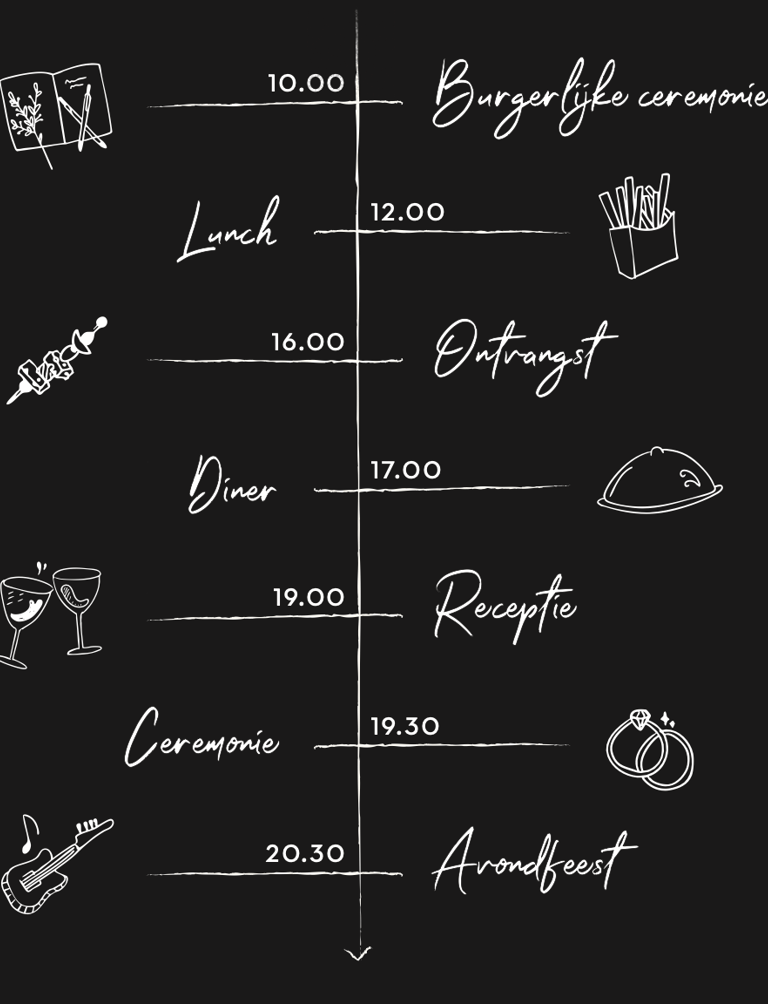 10.00 Burgerlijke ceremonie
Lunch 12.00
16.00 Ontvangst
Diner 17.00
19.00 Receptie
Ceremonie 19.30
20.30 Avondfeest